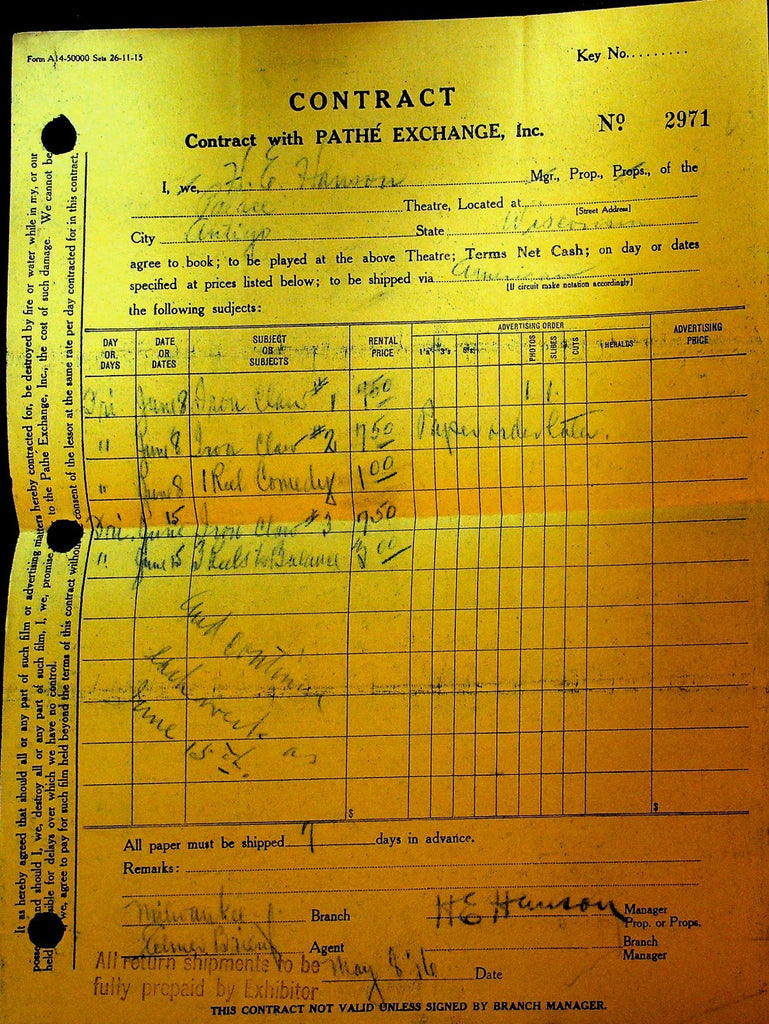 Form A14-50000 Sets 26-11-15
Key No.........
CONTRACT
Contract with PATHÉ EXCHANGE, Inc. No 2971
I, we, H. E. Hanson Mgr., Prop., Props., of the
Palace Theatre, Located at
[Street Address]
City Antigo State Wisconsin
agree to book; to be played at the above Theatre; Terms Net Cash; on day or dates
specified at prices listed below; to be shipped via American
[If circuit make notation accordingly]
the following subjects:
DAY OR DAYS DATE OR DATES SUBJECT OR SUBJECTS RENTAL PRICE ADVERTISING ORDER ADVERTISING PRICE
1's 3's 6's PHOTOS SLIDES CUTS HERALDS
Fri June 8 Iron Claw #1 7 50 1 1
" June 8 Iron Claw #2 7 50 Paper order later.
" June 8 1 Reel Comedy 1 00
Fri. June 15 Iron Claw #3 7 50
" June 15 3 Reels to Balance 3 00
and continue
each week as
June 15th.
$ $
All paper must be shipped 7 days in advance.
Remarks:
Milwaukee Branch H E Hanson Manager
Prop. or Props.
Agent Branch Manager
May 8 '16 Date
All return shipments to be
fully prepaid by Exhibitor
THIS CONTRACT NOT VALID UNLESS SIGNED BY BRANCH MANAGER.
It as hereby agreed that should all or any part of such film or advertising matters hereby contracted for, be destroyed by fire or water while in my, or our
and should I, we, destroy all or any part of such film, I, we, promise to the Pathe Exchange, Inc., the cost of such damage. We cannot be
held for delays over which we have no control.
we, agree to pay for such film held beyond the terms of this contract without consent of the lessor at the same rate per day contracted for in this contract.